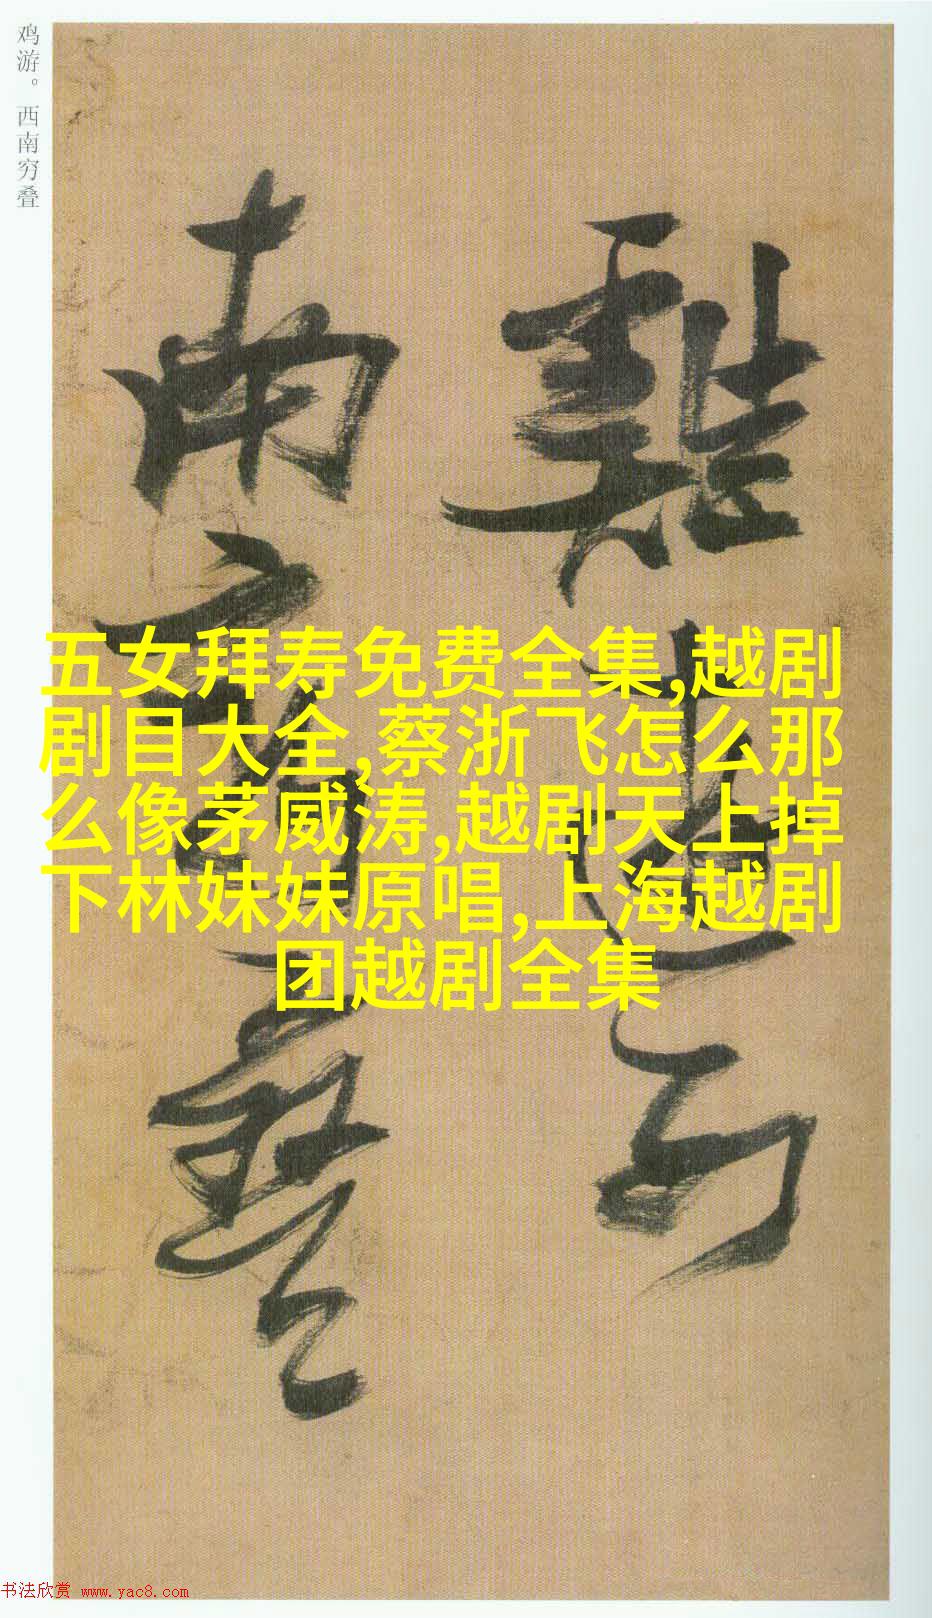 鸡游。西南穷叠
雞遊西
南窮疊
五女拜寿免费全集,越剧
剧目大全,蔡浙飞怎么那
么像茅威涛,越剧天上掉
下林妹妹原唱,上海越剧
团越剧全集
书法欣赏 www.yac8.com